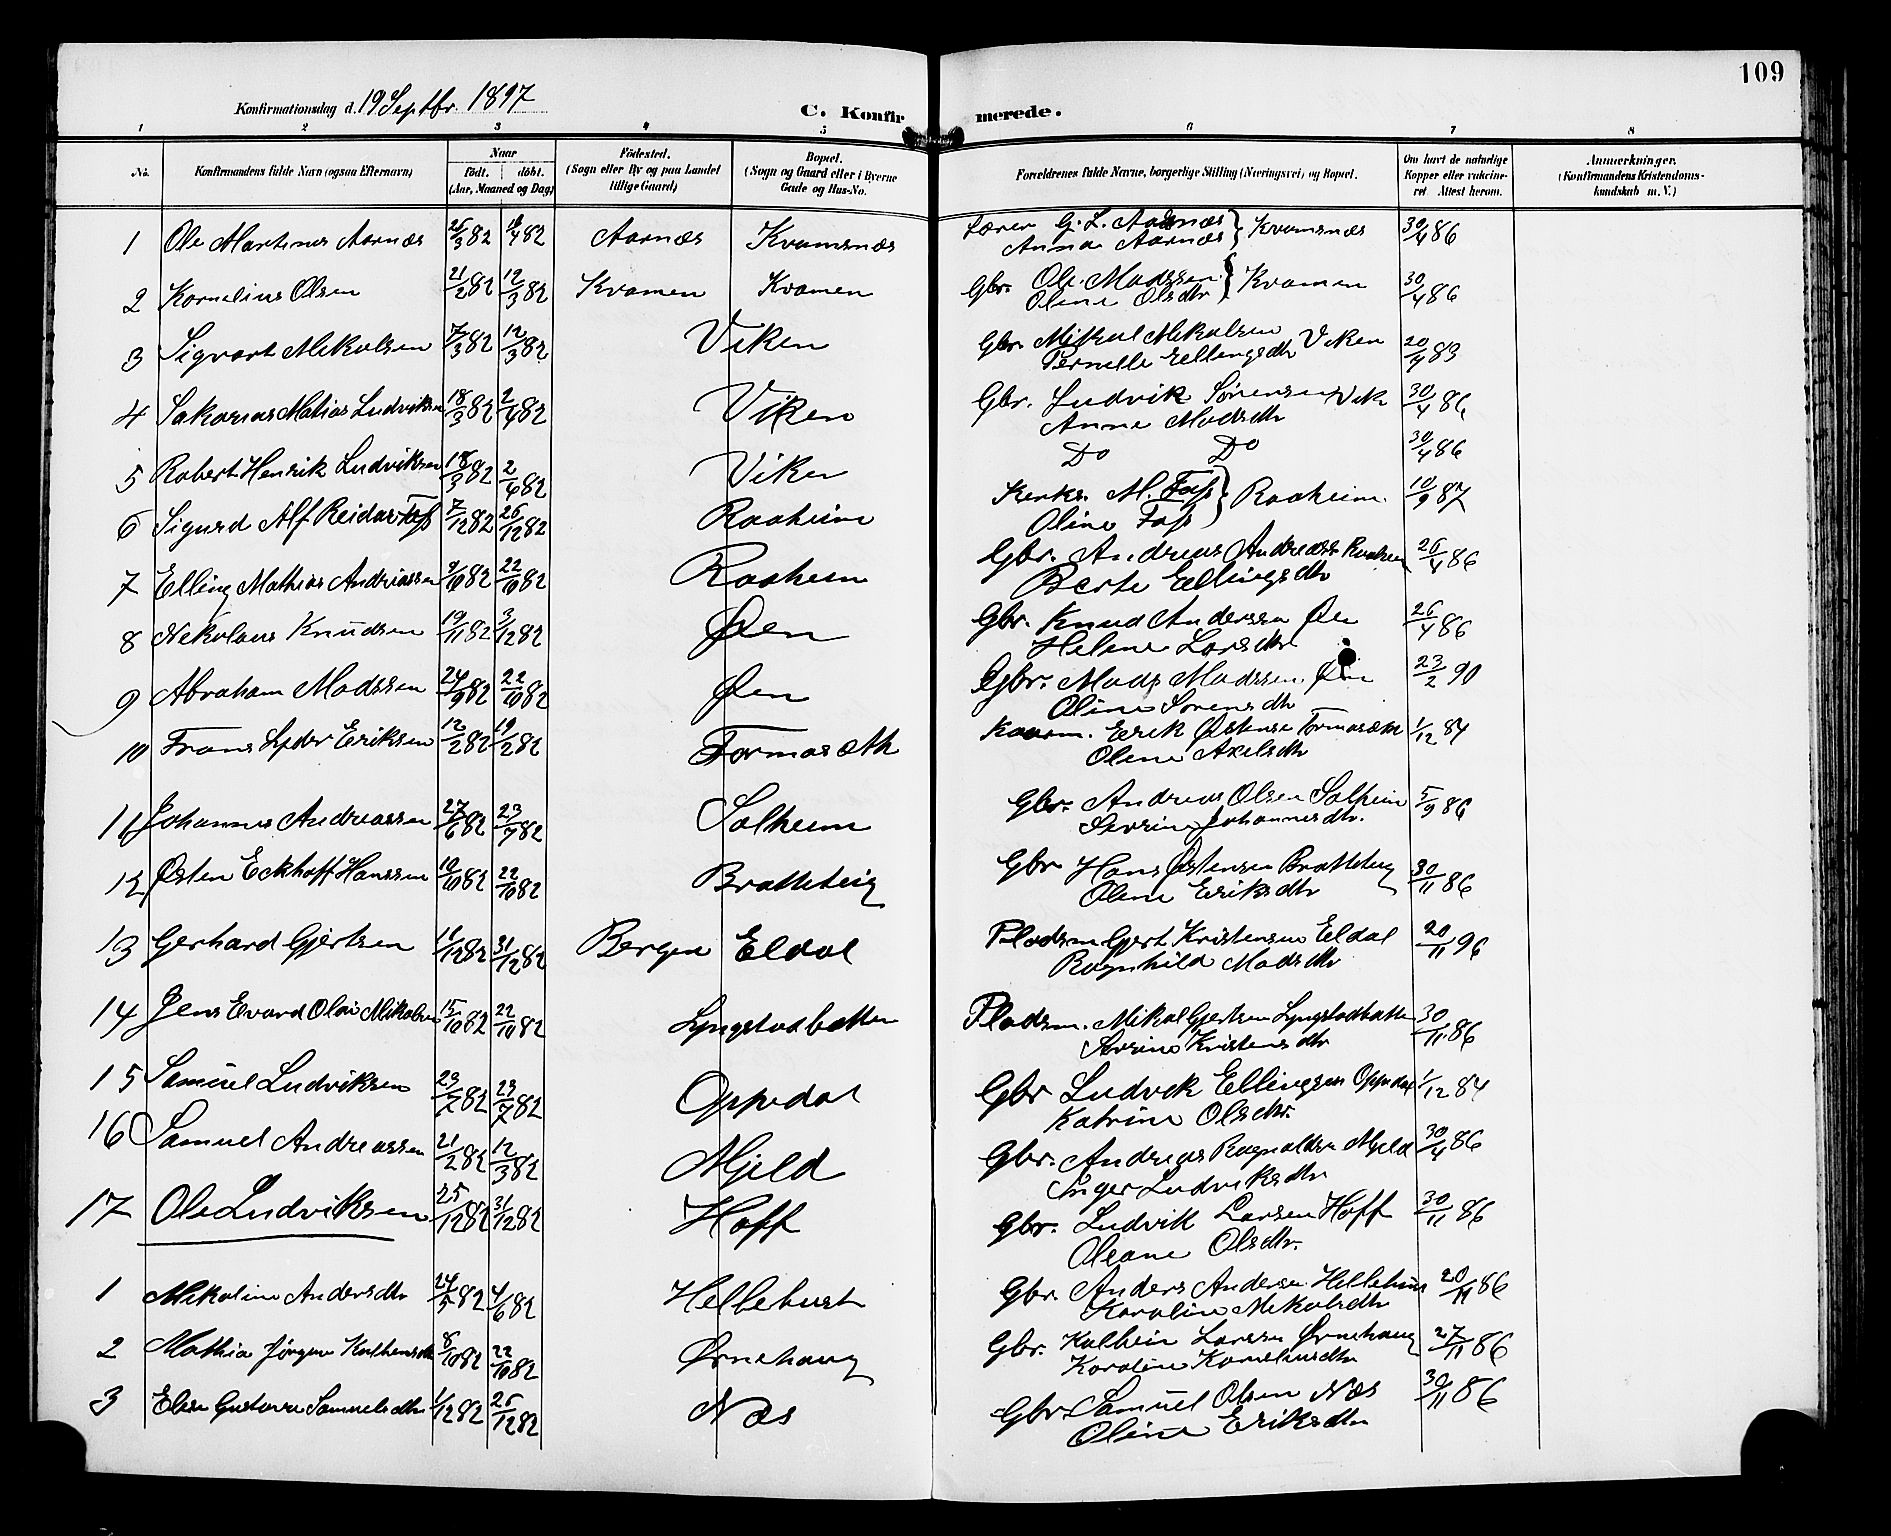 109
Konfirmationsdag d. 19 Septbr. 1897
C. Konfirmerede.
1 2 3 4 5 6 7 8
No.
Konfirmandens fulde Navn (ogsaa Efternavn)
Naar
Födt. döbt.
(Aar, Maaned og Dag)
Födested.
(Sogn eller By og paa Landet
tillige Gaard)
Bopæl.
(Sogn og Gaard eller i Byerne
Gade og Hus-No.
Forældrenes fulde Navne, borgerlige Stilling (Næringsvei) og Bopæl.
Om havt de naturlige
Kopper eller vakcine-
ret Attest herom.
Anmærkninger.
(Konfirmandens Kristendoms-
kundskab m. V.)
1 Ole Martinus Aarnæs 26/3 82 10/4 82 Aarnæs Kvamsnæs Lærer G. L. Aarnæs } Kvamsnæs 30/4 86
Anna Aarnæs
2 Kornelius Olsen 21/2 82 12/3 82 Kvamen Kvamen Gbr. Ole Madssen } Kvamen 30/4 86
Oline Olsdtr
3 Sigvart Mikalsen 7/3 82 12/3 82 Viken Gbr. Mikal Mikalsen Viken 20/4 83
Pernille Ellingsdtr
4 Sakarias Matias Ludviksen 18/3 82 2/4 82 Viken Gbr. Ludvik Sørensen Vik 30/4 86
Anne Madsdtr
5 Robert Henrik Ludviksen 18/3 82 2/4 82 Viken Do Do 30/4 86
6 Sigurd Alf Reidar Fass 7/12 82 26/12 82 Raaheim Kirks. M. Fass } Raaheim. 10/9 87
Oline Fass
7 Elling Mathias Andreassen 9/10 82 22/10 82 Raaheim Gbr. Andreas Andreass. Raaheim 26/4 86
Berte Ellingsdtr
8 Nikolaus Knudsen 19/11 82 3/12 82 Øen Gbr. Knud Anderssen Øen 26/4 86
Helene Larsdtr
9 Abraham Madssen 24/9 82 22/10 82 Øen Gbr. Mads Madssen Øen 23/2 90
Oline Sørensdtr
10 Frans Lyder Eriksen 12/2 82 19/2 82 Tormasæth Kaarm. Erik Østensen Tormasæth 1/12 84
Oline Axelsdtr
11 Johannes Andreassen 27/6 82 23/7 82 Solheim Gbr. Andreas Olsen Solheim 5/9 86
Severine Johannesdtr.
12 Østen Eckhoff Hanssen 10/10 82 22/10 82 Bratteteig Gbr Hans Østensen Bratteteig 30/11 86
Oline Eriksdtr
13 Gerhard Gjertsen 11/12 82 31/12 82 Bergen Eldal Pladsm Gjert Kristensen Eldal 20/11 96
Ragnhild Madsdtr
14 Jens Evard Olai Mikalsen 15/10 82 22/10 82 Lyngstadbotten Pladsm. Mikal Gjertsen Lyngstadbotten 30/11 86
Severine Kristensdtr
15 Samuel Ludviksen 23/7 82 23/7 82 Oppedal Gbr Ludvik Ellingsen Oppedal 1/12 84
Katrine Olsdtr.
16 Samuel Andreassen 21/2 82 12/3 82 Mjeld Gbr. Andreas Ragnaldsen Mjeld 30/4 86
Inger Ludviksdtr
17 Ole Ludviksen 25/12 82 31/12 82 Hoff Gbr. Ludvik Larsen Hoff 30/11 86
Oleane Olsdtr.
1 Mikaline Andersdtr 24/5 82 4/6 82 Hellebust Gbr. Anders Andersen Hellebust 20/11 86
Karoline Mikalsdtr
2 Mathia Jørgine Kolbeinsdtr 8/10 82 22/10 82 Ørnehaug Gbr. Kolbein Larssen Ørnehaug 27/11 86
Karoline Korneliusdtr
3 Elise Gustava Samuelsdtr 1/12 82 26/12 82 Næs Gbr Samuel Olsen Næs 30/11 86
Oline Eriksdtr